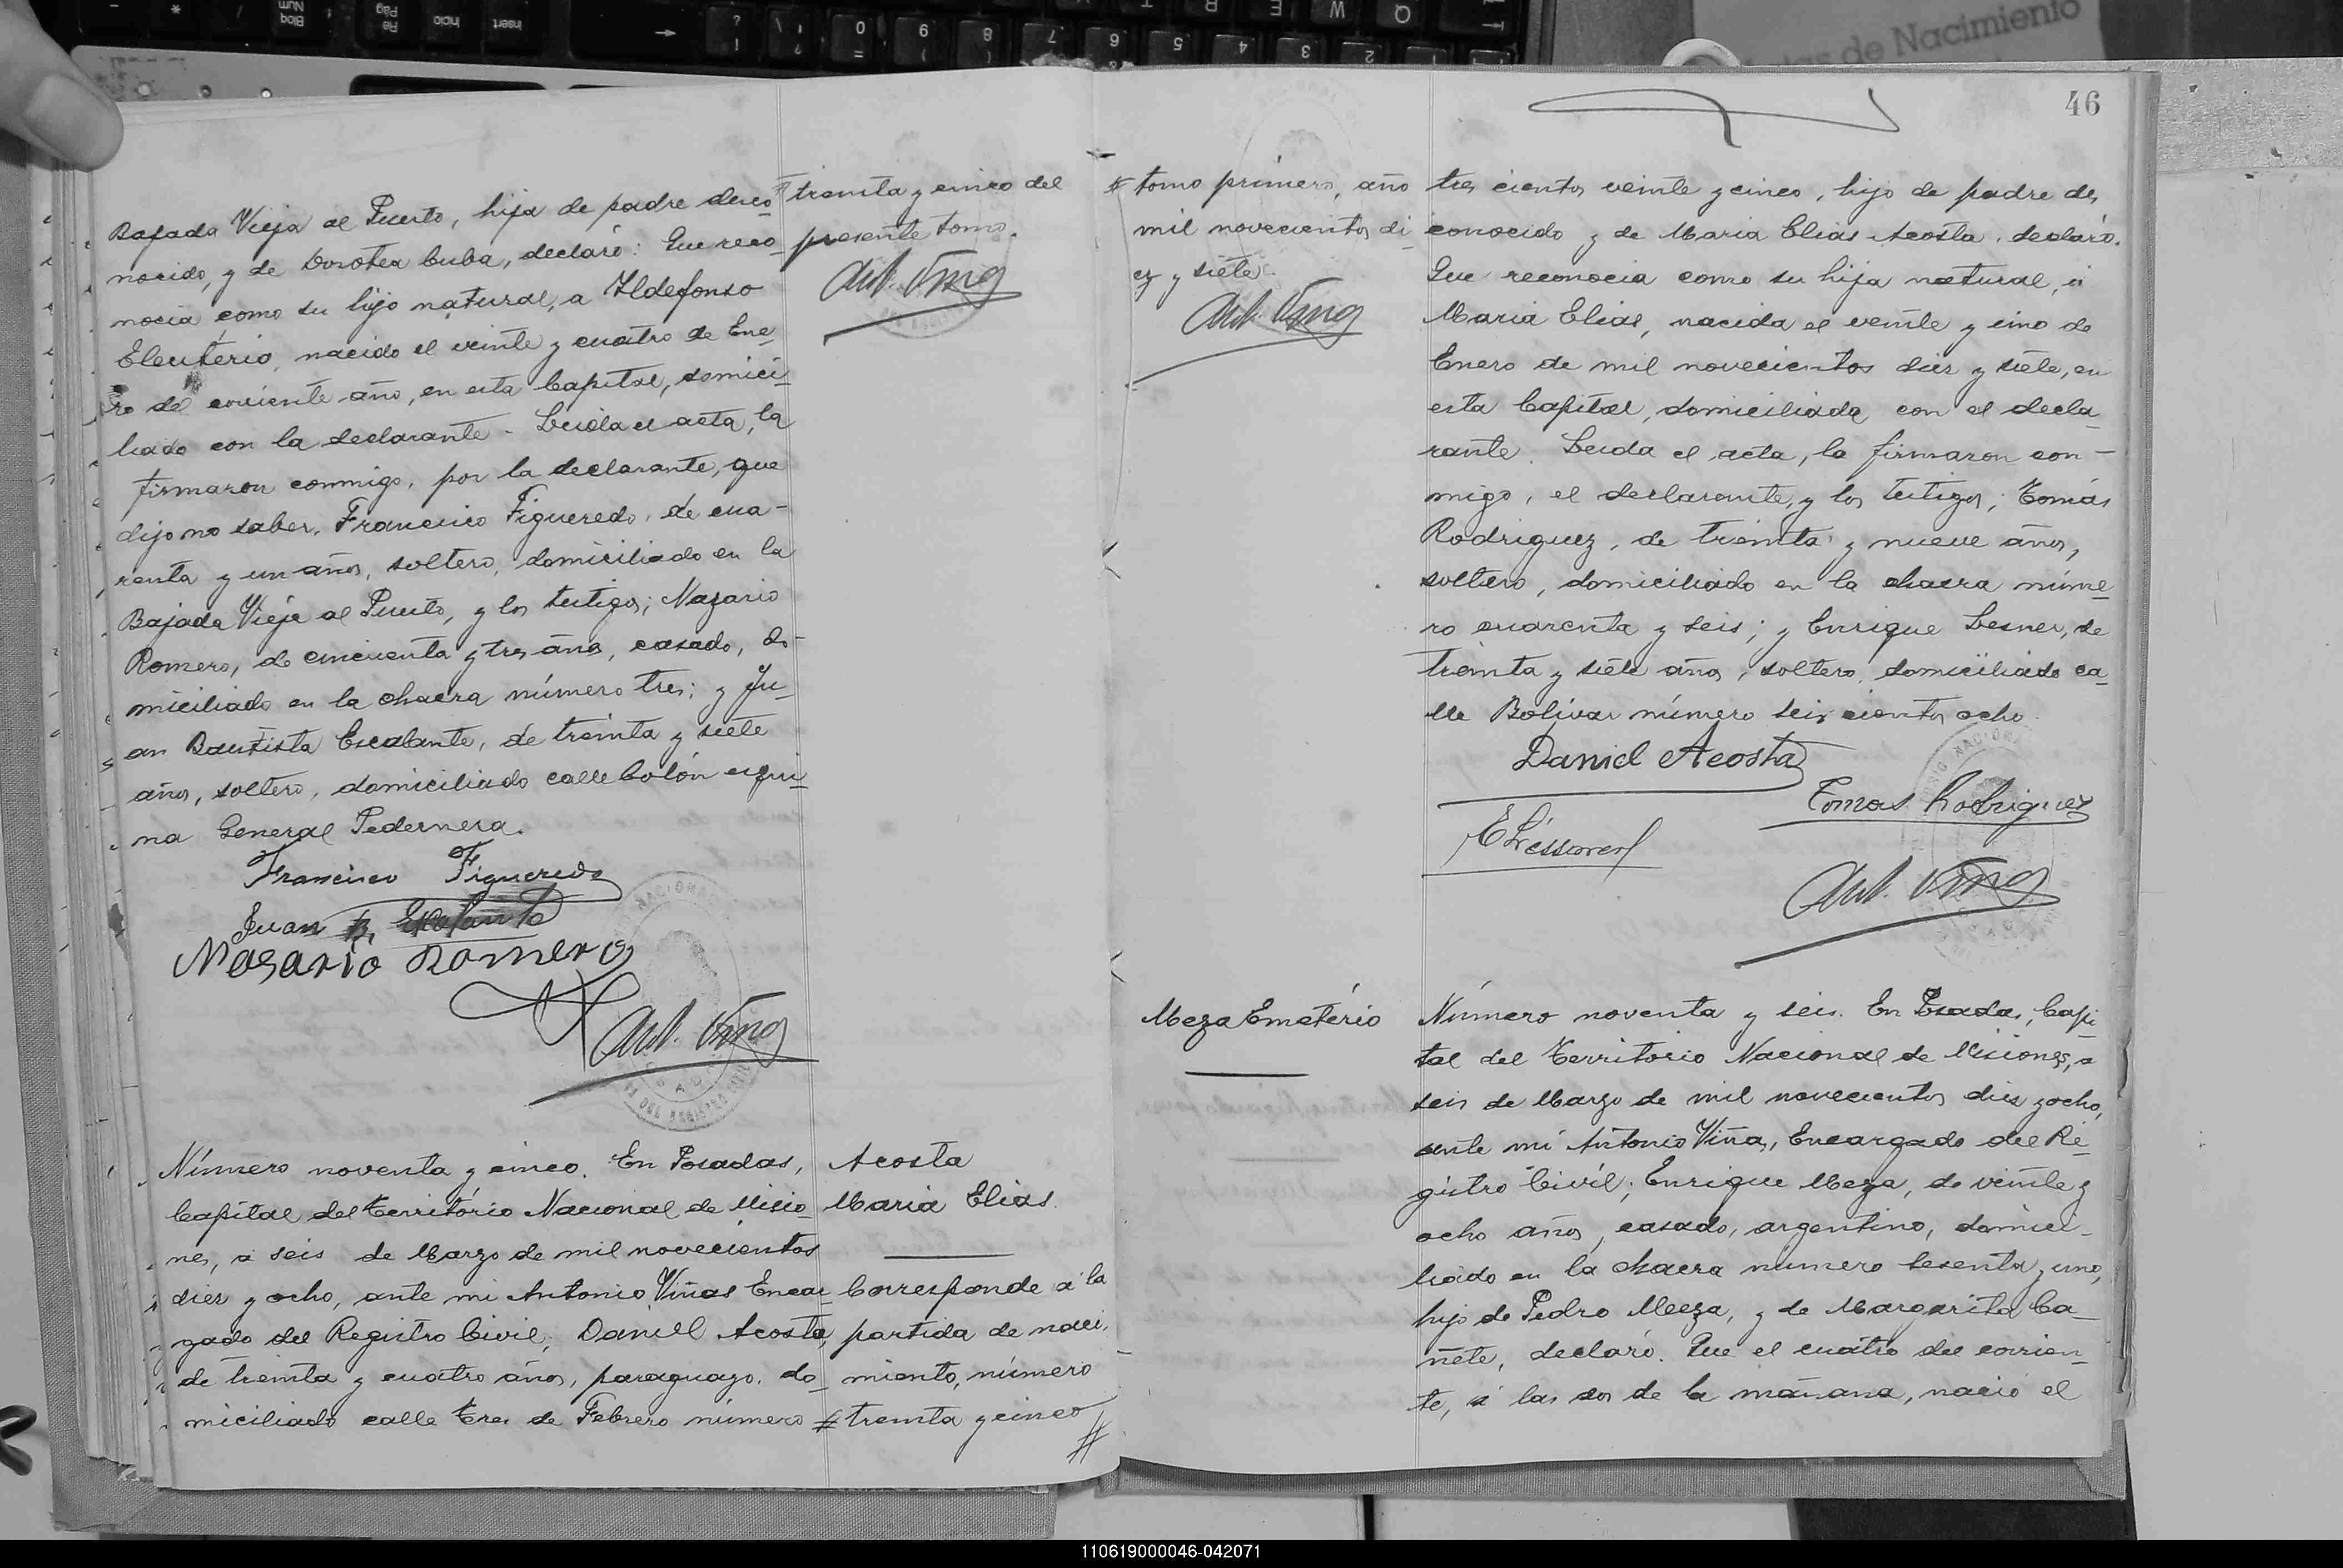 46
Bajada Vieja al Puerto, hija de padre desco
nocido, y de Dorotea Cuba, declaró: Que reco
nocia como su hijo natural, a Ildefonso
Eleuterio, nacido el veinte y cuatro de Ene
ro del corriente año, en esta Capital, domici
liado con la declarante - Leida el acta, la
firmaron conmigo, por la declarante, que
dijo no saber, Francisco Figueredo, de cua-
renta y un años, soltero, domiciliado en la
Bajada Vieja al Puerto, y los testigos; Nazario
Romero, de cincuenta y tres años, casado, do-
miciliado en la chacra número tres; y Ju
an Bautista Escalante, de treinta y siete
años, soltero, domiciliado calle Colón esqui
na General Pedernera.
Francisco Figueredo
Juan B. Escalante
Nasario Romero
Ant. Viñas
treinta y cinco del
presente tomo.
Ant. Viñas
Número noventa y cinco. En Posadas,
Capital del Territorio Nacional de Misio
nes, a seis de Marzo de mil novecientos
diez y ocho, ante mi Antonio Viñas Encar
gado del Registro Civil; Daniel Acosta,
de treinta y cuatro años, paraguayo, do
miciliado calle Tres de Febrero número
Acosta
Maria Elias.
Corresponde a la
partida de naci
miento, número
# treinta y cinco
#
# tomo primero, año
mil novecientos di
ez y siete.
Ant. Viñas
tres cientos veinte y cinco, hijo de padre des
conocido y de Maria Elias Acosta, declaró.
Que reconocia como su hija natural, a
Maria Elias, nacida el veinte y cinco de
Enero de mil novecientos diez y siete, en
esta Capital, domiciliada con el decla
rante. Leida el acta, la firmaron con-
migo, el declarante, y los testigos; Tomás
Rodriguez, de treinta y nueve años,
soltero, domiciliado en la chacra núme
ro cuarenta y seis; y Enrique Lesner, de
treinta y siete años, soltero, domiciliado ca
lle Bolívar número seis cientos ocho.
Daniel Acosta
Tomas Rodriguez
Ant. Viñas
Meza Emeterio
Número noventa y seis. En Posadas, Capi
tal del Territorio Nacional de Misiones, a
seis de Marzo de mil novecientos diez y ocho,
ante mi Antonio Viñas, Encargado del Re
gistro Civil; Enrique Meza, de veinte y
ocho años, casado, argentino, domici-
liado en la chacra número sesenta y uno,
hijo de Pedro Meza, y de Margarita Ca
ñete, declaró. Que el cuatro del corrien
te, a las dos de la mañana, nació el
110619000046-042071